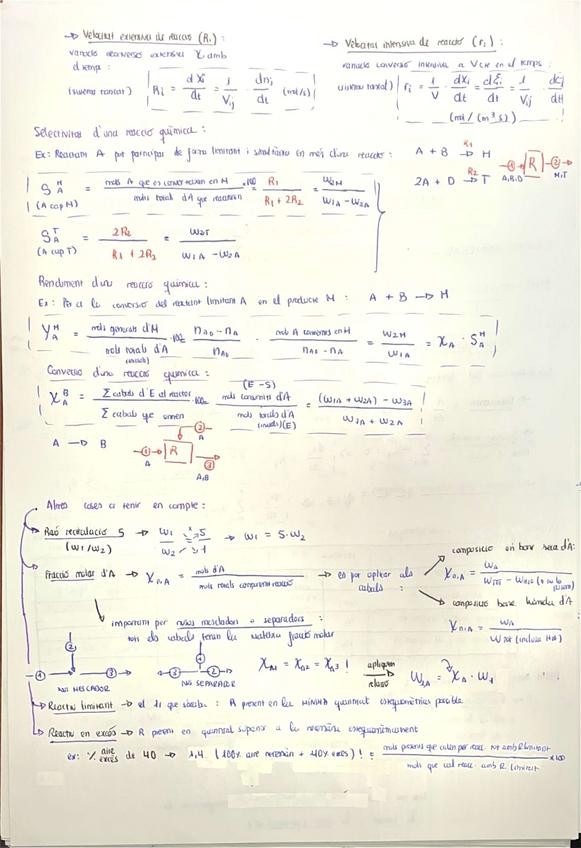 → Velocitat extensiva de reacció (Ri):
variació conversió extensiva X amb
el temps:
(sistema tancat) Ri = dXi/dt = 1/Vij · dnj/dt (mol/s)
→ Velocitat intensiva de reacció (ri):
variació conversió intensiva a V cte en el temps:
(sistema tancat) ri = 1/V · dXi/dt = dξi/dt = 1/Vij · dcj/dt
(mol/(m³s))
Selectivitat d'una reacció química:
Ex: Reactant A pot participar de forma limitant i simultània en més d'una reacció:
A + B →R1 M
2A + D →R2 T
1 R 2
A,B,D M,T
S_A^M = mols A que es converteixen en M / mols totals d'A que reaccionen · 100 = R1 / R1 + 2R2 = W2M / W1A - W2A
(A cap M)
S_A^T = 2R2 / R1 + 2R2 = W2T / W1A - W2A
(A cap T)
Rendiment d'una reacció química:
Ex: Per a la conversió del reactant limitant A en el producte M: A + B → M
Y_A^M = mols generats d'M / mols totals d'A (inicials) · 100 = nA0 - nA / nA0 · mols A convertits en M / nA0 - nA = W2M / W1A = XA · S_A^M
Conversió d'una reacció química:
(E-S)
X_A^B = Σ cabals d'E al reactor / Σ cabals que entren · 100 = mols consumits d'A / mols totals d'A (inicials)(E) = (W1A + W2A) - W3A / W1A + W2A
A → B
1 A R 2 A 3 A,B
Altres coses a tenir en compte:
Raó recirculació S → W1/W2 = S/1 → W1 = S·W2
(W1/W2)
Fracció molar d'A → Xn,A = mols d'A / mols totals → es pot aplicar als
cabals:
composició en base seca d'A:
Xn,A = WA / WTOT - WH2O
composició base humida d'A
Xn,A = WA / WTOT (inclosa H2O)
important per nusos mescladors o separadors:
tots els cabals tenen la mateixa fracció molar
1 2 3
NUS MESCLADOR
3 1 2
NUS SEPARADOR
XA1 = XA2 = XA3 ! apliquem relació W2A = XA · W1
Reactiu limitant → el 1r que s'acaba: A present en la MÍNIMA quantitat estequiomètrica possible
Reactiu en excés → R present en quantitat superior a la necessària estequiomètricament
ex: % aire excés de 40 → 1,4 (100% aire necessari + 40% excés)! =
mols que cal reacc. amb R limitant x100